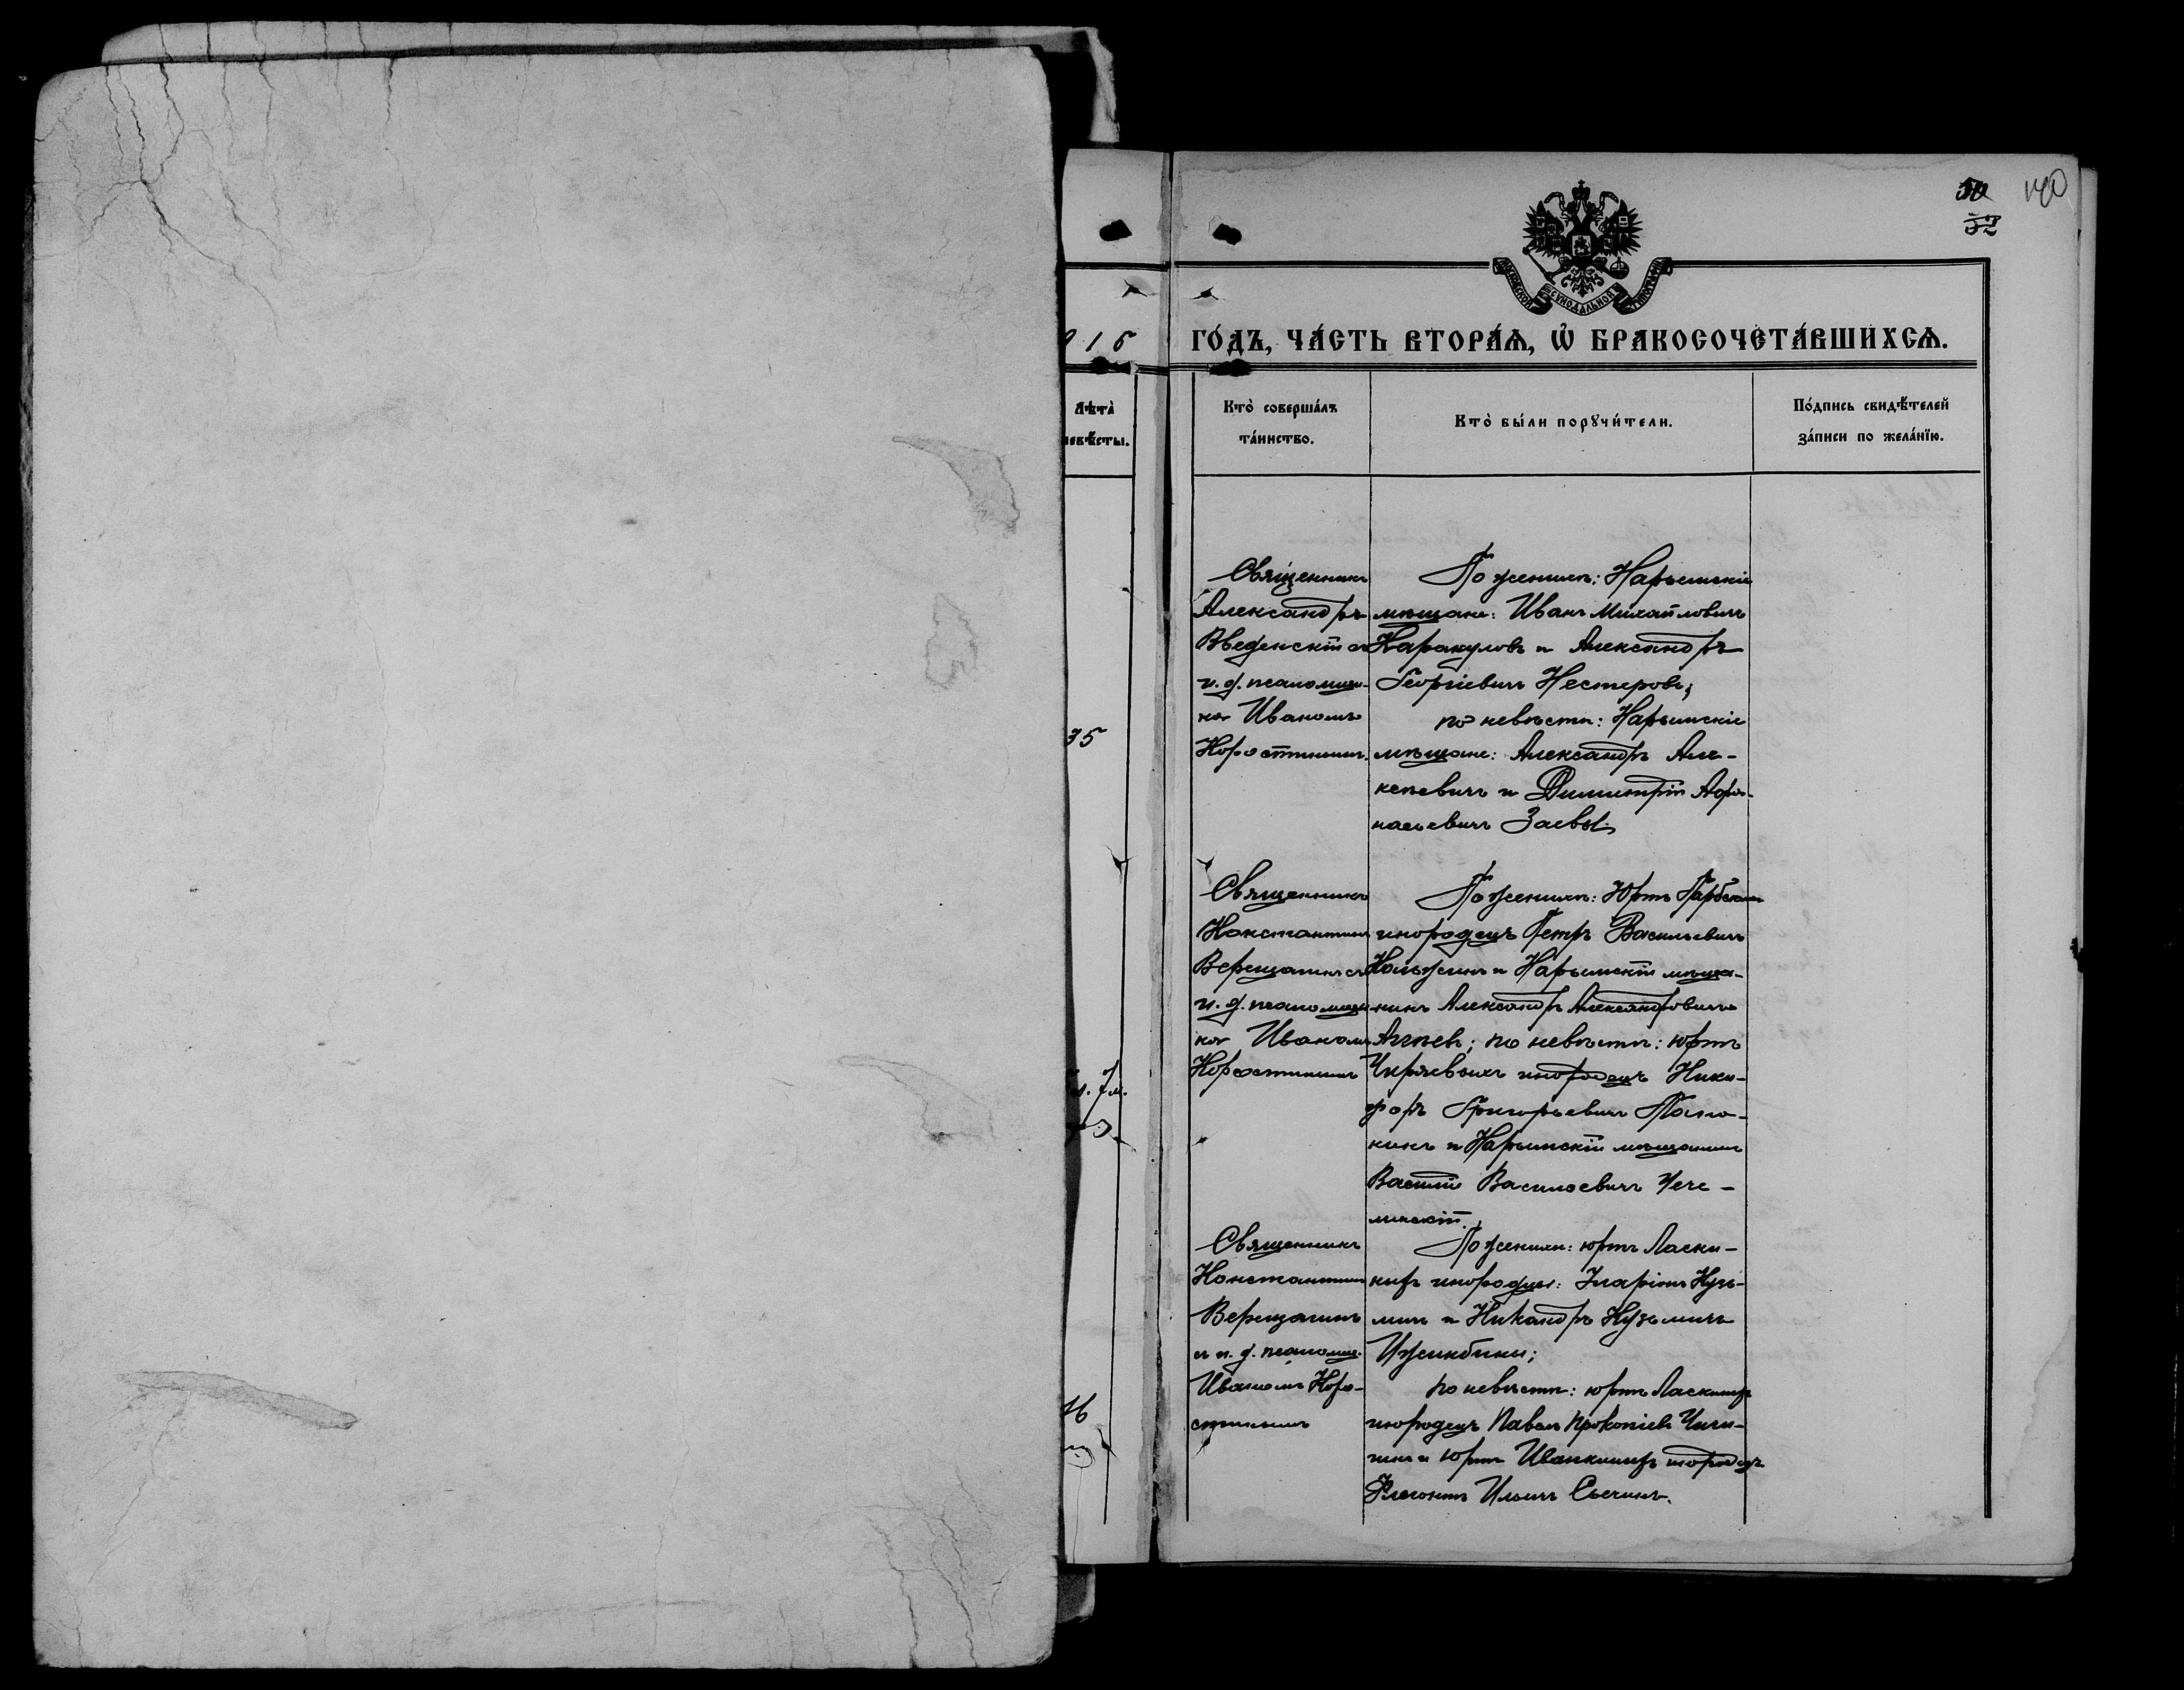 140
50
52
МОСКОВСКОЙ СѴНОДАЛЬНОЙ ТИПОГРАФІИ
915 ГО́ДЪ, ЧА́СТЬ ВТОРА́Ѧ, Ѽ БРАКОСОЧЕТА́ВШИХСѦ.
Лѣта̀
невѣ́сты.
Кто̀ соверша́лъ
та́инство.
Кто̀ бы́ли порꙋчи́тели.
По́дпись свидѣ́телей
за́писи по жела́нїю.
35
16
Священникъ
Александръ
Введенскій съ
и. д. псаломщи-
ка Иваномъ
Коростинымъ.
По женихѣ: Нарымскіе
мѣщане: Иванъ Михайловичъ
Каракуловъ и Александръ
Георгіевичъ Нестеровъ;
по невѣстѣ: Нарымскіе
мѣщане: Александръ Але-
ксѣевичъ и Димитрій Афа-
насьевичъ Заевы.
Священникъ
Константинъ
Верещагинъ съ
и. д. псаломщи-
ка Иваномъ
Коростинымъ
По женихѣ: Юртъ
инородецъ Петръ Васильевичъ
и Нарымскій мѣща-
нинъ Александръ Александровичъ
по невѣстѣ: юртъ
инородецъ Ники-
форъ Григорьевичъ
и Нарымскій мѣщанинъ
Василій Васильевичъ
Священникъ
Константинъ
Верещагинъ
съ и. д. псаломщ.
Иваномъ Коро-
стинымъ
По женихѣ: юртъ Ласки-
ныхъ инородцы: Иларіонъ Кузь-
мичъ и Никандръ Кузьмичъ
Ижинбины;
по невѣстѣ: юртъ Ласкиныхъ
инородецъ Павелъ Прокопіевъ Чичи-
гинъ и юртъ Иванкиныхъ инородецъ
Флегонтъ Ильичъ